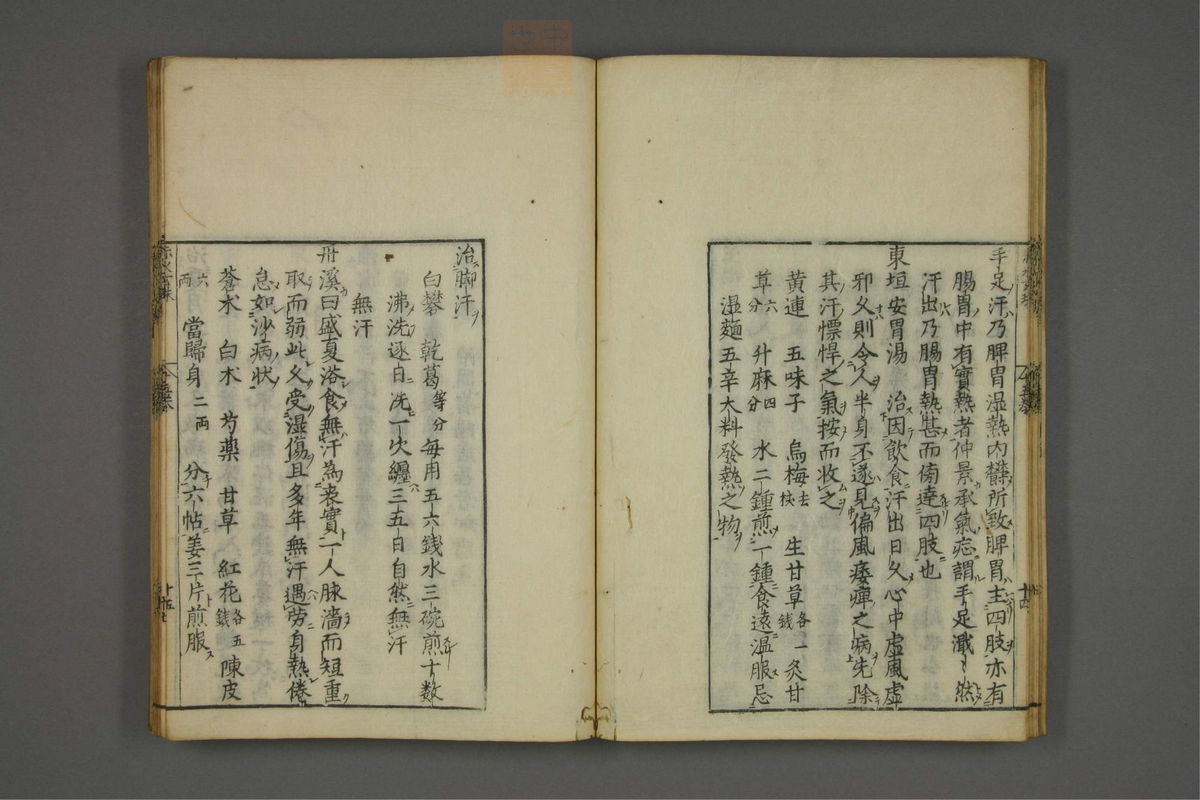 手足汗乃脾胃湿熱内欝所致脾胃主四肢亦有
腸胃中有實熱者仲景承氣症謂手足濈〻然
汗出乃腸胃熱甚而傍達四肢也
東垣安胃湯 治因飲食汗出日久心中虚風虚
邪久則令人半身不遂見偏風痿痺之病先除
其汗慓悍之氣按而收之
黄連 五味子 烏梅去核 生甘草各一錢 炙甘
草六分 升麻四分 水二鍾煎一鍾食遠温服忌
湿麺五辛大料發熱之物
治脚汗
白礬 乾葛等分 毎用五六錢水三碗煎十数
沸洗逐日洗一次纏三五日自然無汗
無汗
丹溪曰盛夏浴食無汗為表實一人脉濇而短重
取而弱此久受湿傷且多年無汗遇劳身熱倦
怠如沙病状
蒼朮 白朮 芍薬 甘草 紅花各五錢 陳皮
六両 當歸身二両 分六帖姜三片煎服